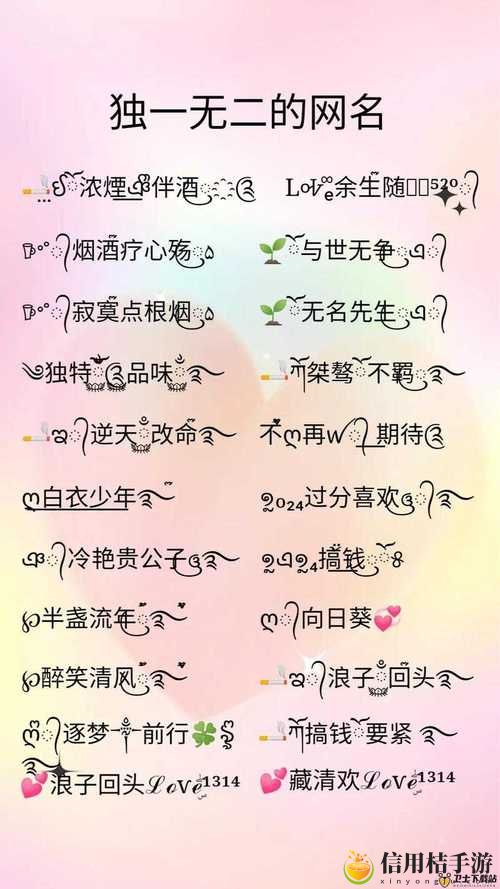 独一无二的网名
🚬ꦿ浓煙伴酒 Love余生随520
烟酒疗心殇 🌱与世无争
寂寞点根烟 🌱无名先生
独特品味 🚬桀骜不羁
🚬逆天改命 不ღ再w期待
ღ白衣少年 2024过分喜欢
冷艳贵公子 搞钱
℘半盏流年 ღ向日葵💞
℘醉笑清风 🚬浪子回头
ღ逐梦前行🍀 🚬搞钱要紧
💕浪子回头ℒℴve1314 💕藏清欢ℒℴve1314
信用桔手游
卫士下载站